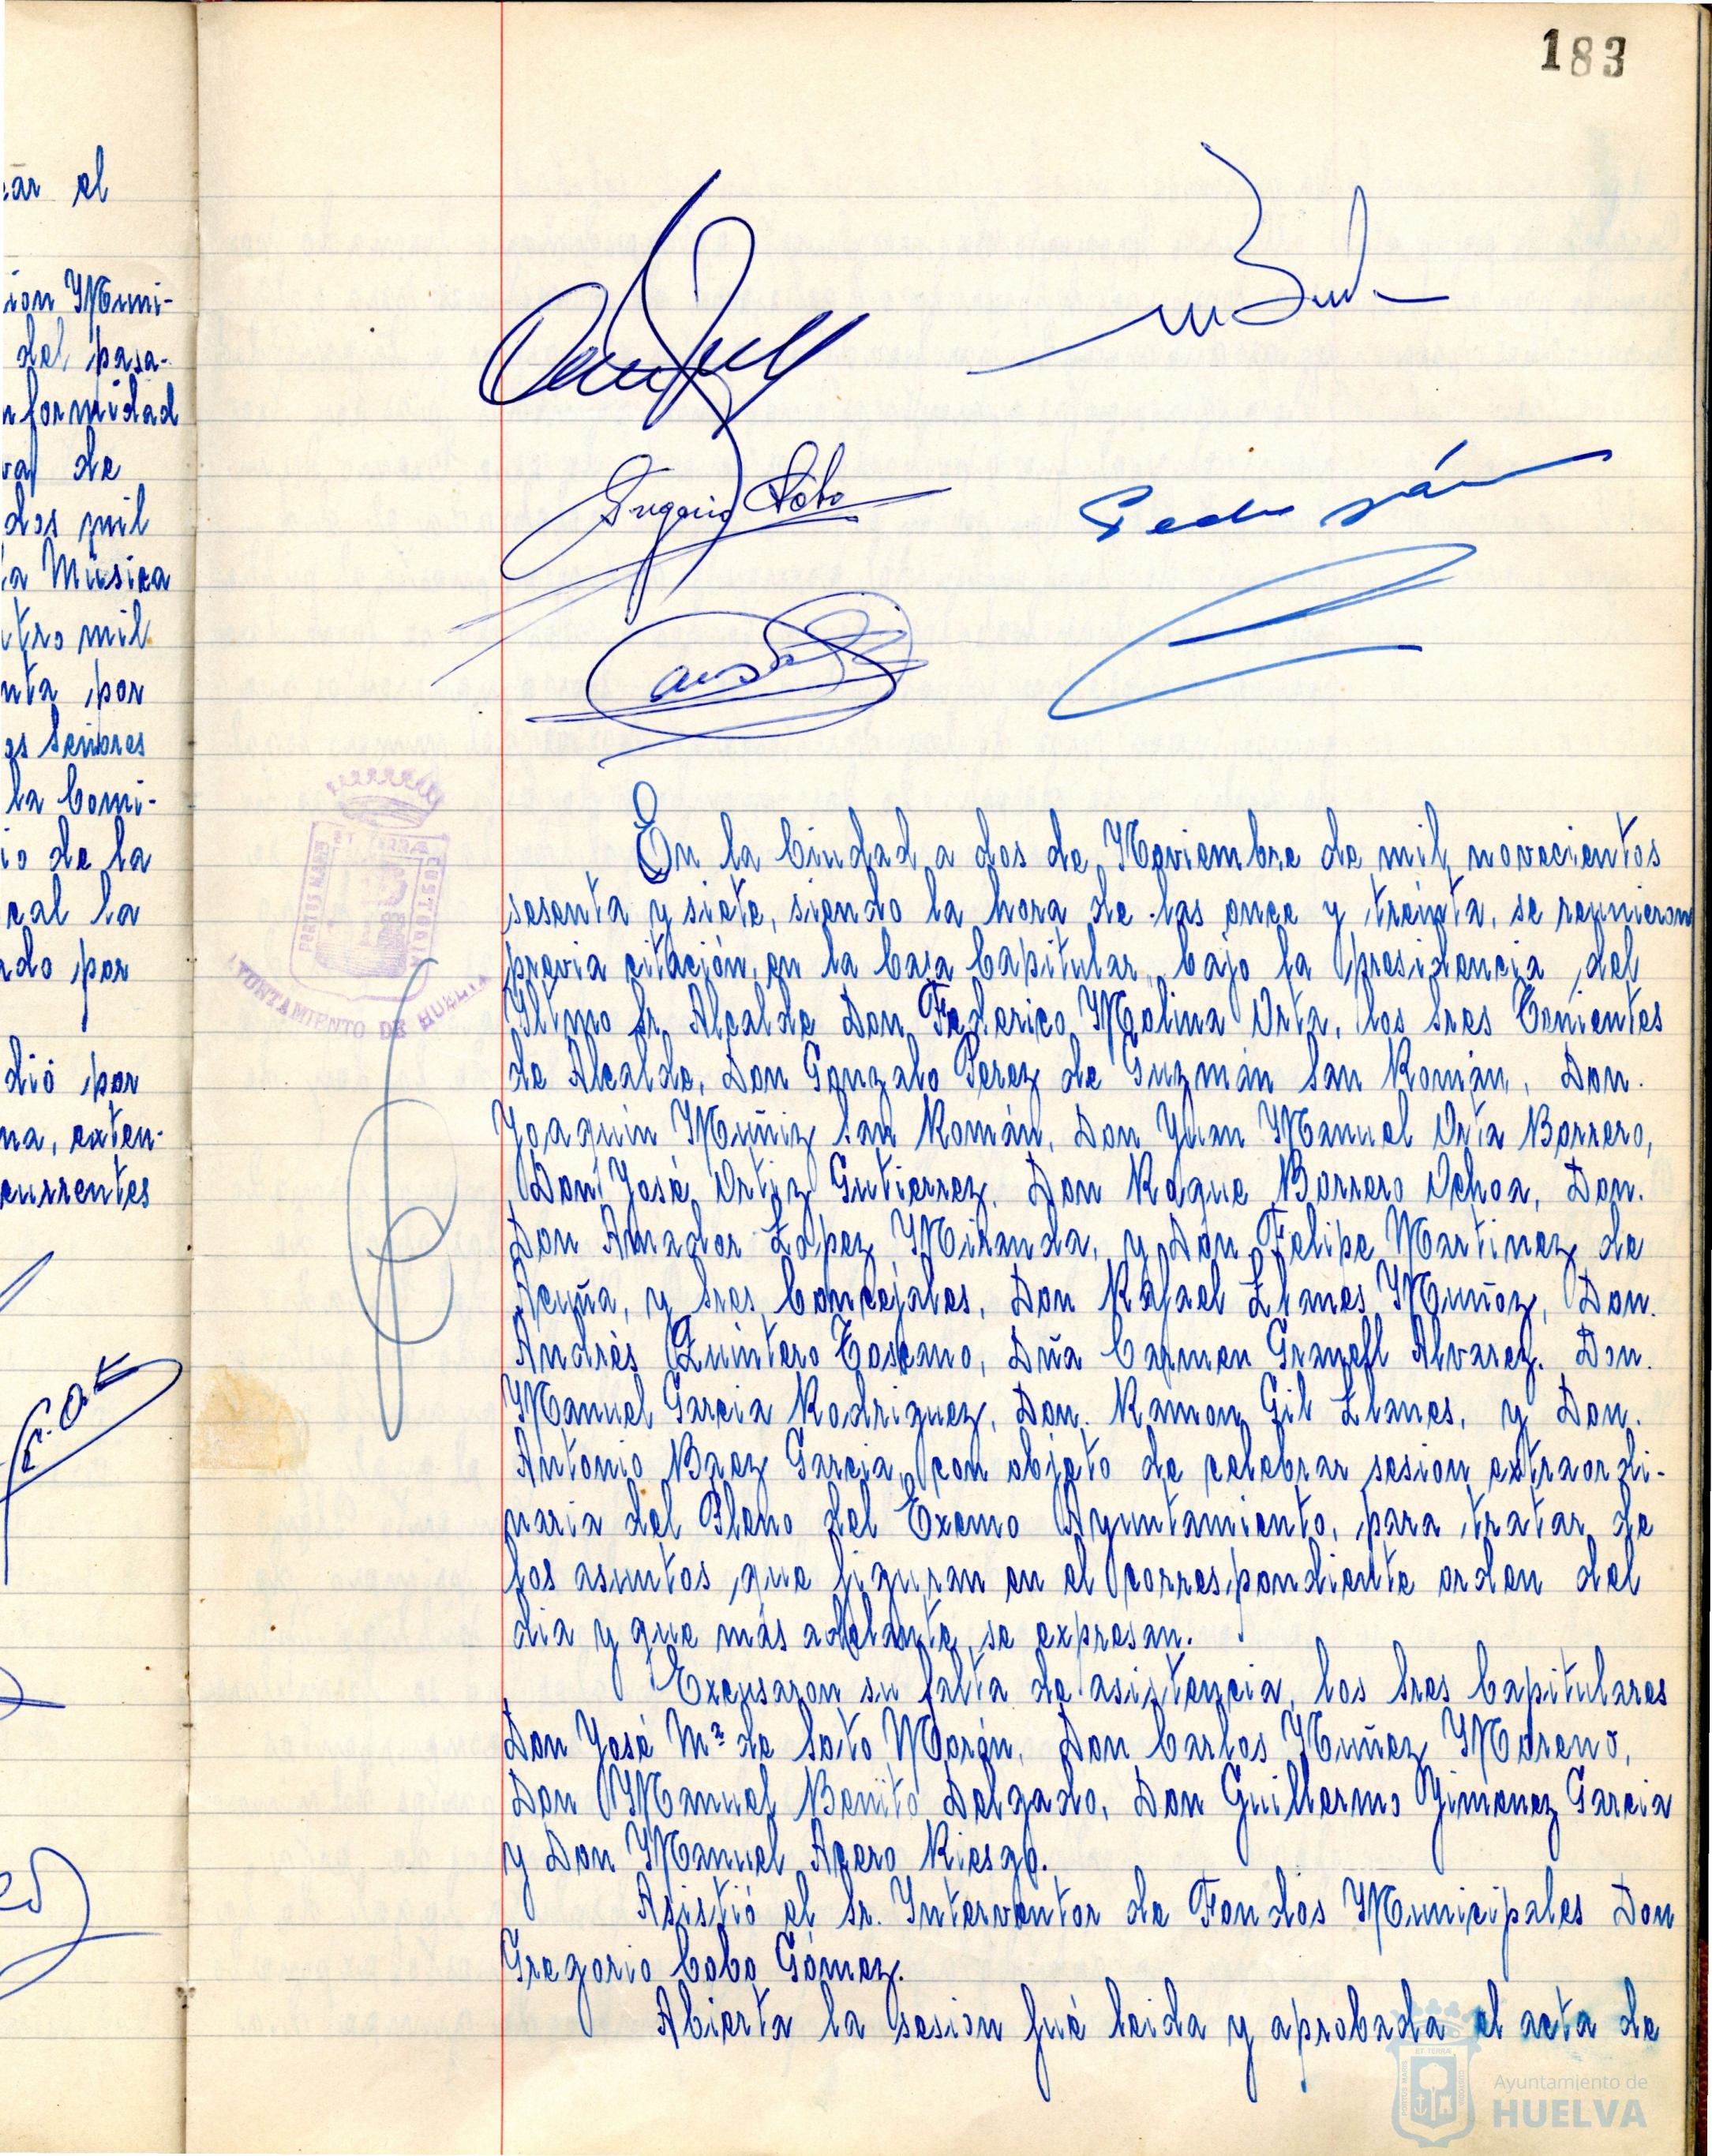 183
ar el
ion Muni-
del pasa-
formidad
de
dos mil
la Música
tro mil
nta por
os Señores
la Comi-
io de la
cal la
do por
dió por
na, exten-
currentes
Eugenio Cobo
Pedro
PORTUS MARIS ET TERRAE CUSTODIA
AYUNTAMIENTO DE HUELVA
En la Ciudad a dos de Noviembre de mil novecientos
sesenta y siete, siendo la hora de las once y treinta, se reunieron
previa citación, en la Casa Capitular, bajo la presidencia del
Iltmo Sr. Alcalde Don Federico Molina Orta, los Sres Tenientes
de Alcalde, Don Gonzalo Perez de Guzmán San Román, Don.
Joaquín Muñiz San Román, Don Juan Manuel Orta Borrero,
Don José Ortiz Gutierrez, Don Roque Borrero Ochoa, Don.
Don Amador López Miranda, y Don Felipe Martinez de
Acuña, y Sres Concejales, Don Rafael Llanes Muñoz, Don.
Andrés Quintero Toscano, Dña Carmen Granell Alvarez. Don.
Manuel Garcia Rodriguez, Don. Ramon Gil Llanes, y Don.
Antonio Baez Garcia, con objeto de celebrar sesion extraordi-
naria del Pleno del Excmo Ayuntamiento, para tratar de
los asuntos que figuran en el correspondiente orden del
dia y que más adelante, se expresan.
Excusaron su falta de asistencia, los Sres Capitulares
Don José Mª de Soto Morón, Don Carlos Nuñez Moreno,
Don Manuel Benito Delgado, Don Guillermo Jimenez Garcia
y Don Manuel Acero Riesgo.
Asistió el Sr. Interventor de Fondos Municipales Don
Gregorio Cobo Gómez.
Abierta la sesion fué leida y aprobada el acta de
Ayuntamiento de
HUELVA